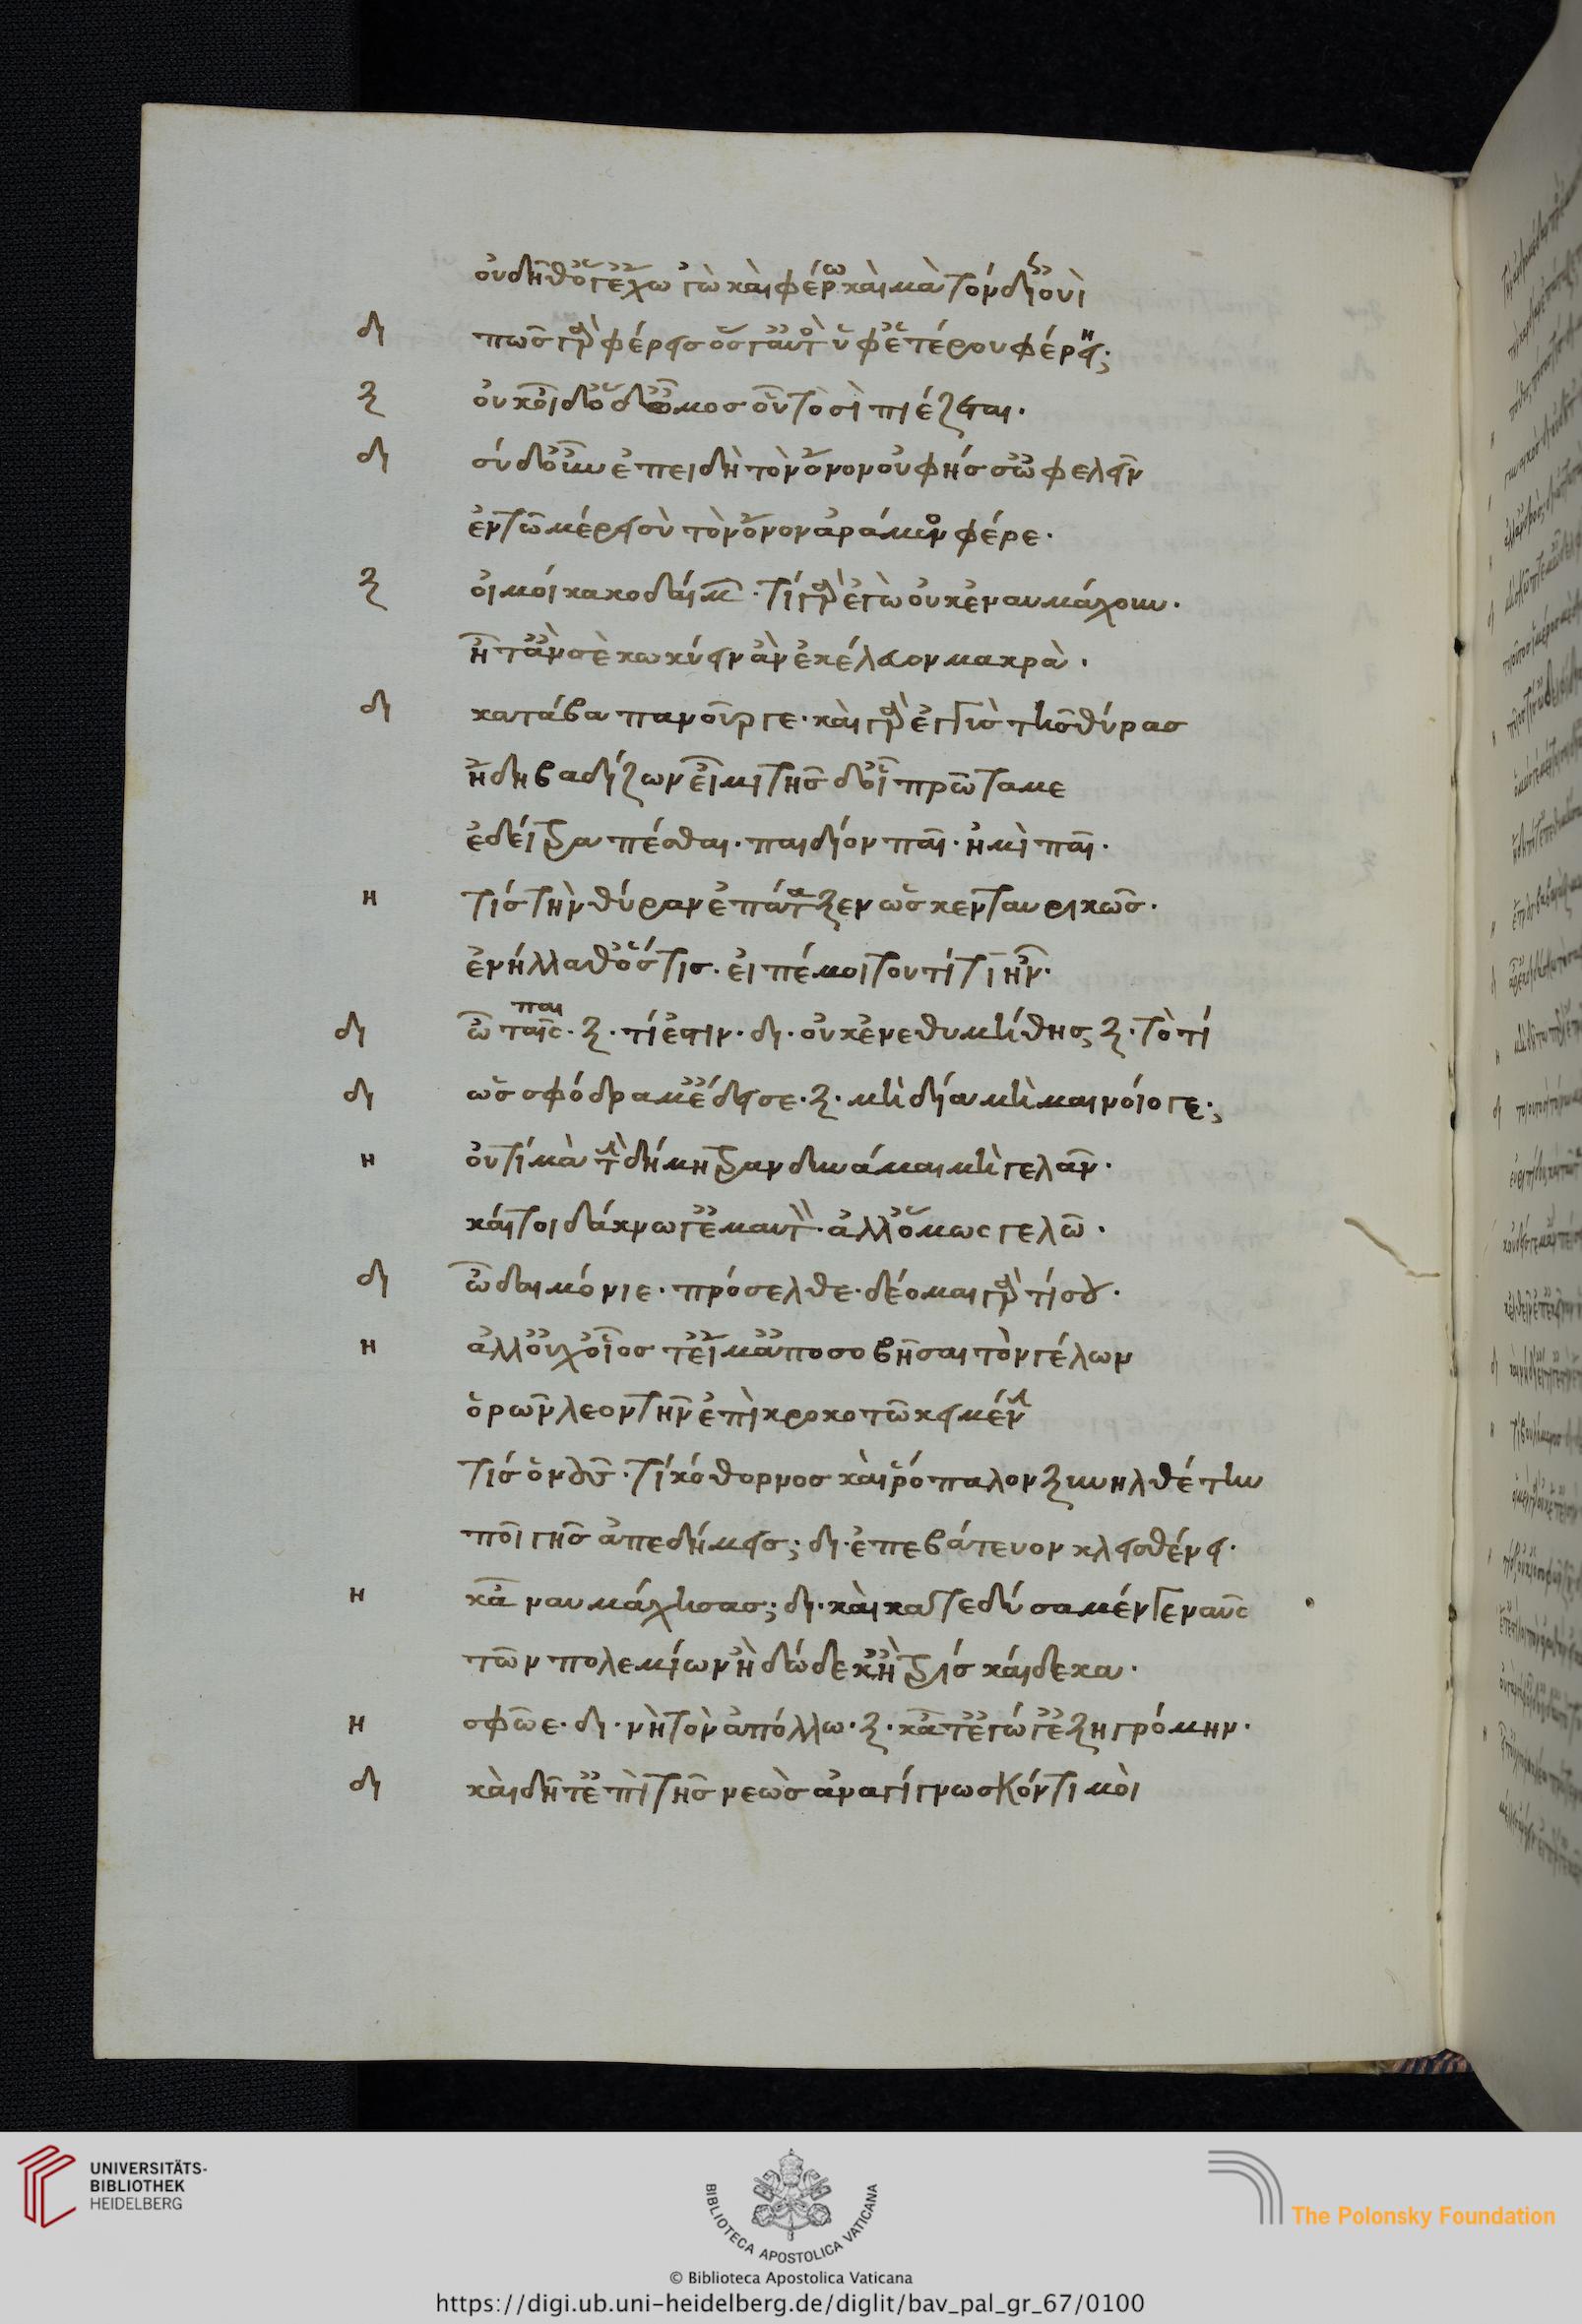 οὐ δῆθ' ὅ γ' ἔχω 'γὼ καὶ φέρω καὶ μὰ τὸν δί' οὐ
δι πῶς γὰρ φέρεις ὅς γ' αὐτὸς ὑφ' ἑτέρου φέρῃ;
ξ οὐκ οἶδ' ὁ δ' ὦμος οὑτοσὶ πιέζεται.
δι σὺ δ' οὖν ἐπειδὴ τὸν ὄνον οὐ φῄς σ' ὠφελεῖν
ἐν τῷ μέρει σὺ τὸν ὄνον ἀράμενος φέρε.
ξ οἴμοι κακοδαίμων. τί γὰρ ἐγὼ οὐκ ἐναυμάχουν.
ἦ τἄν σε κωκύειν ἂν ἐκέλευον μακρά.
δι κατάβα πανοῦργε. καὶ γὰρ ἐγγὺς τῆς θύρας
ἤδη βαδίζων εἰμὶ τῆσδ' οἷ πρῶτα με
ἔδει τραπέσθαι. παιδίον παῖ. ἠμὶ παῖ.
η τίς τὴν θύραν ἐπάταξεν ὡς κενταυρικῶς.
ἐνήλλαθ' ὅστις. εἰπέ μοι τουτὶ τί ἦν.
δι ὦ παῖς. ξ. τί ἔστιν. δι. οὐκ ἐνεθυμήθης ξ. τὸ τί
παι
δι ὡς σφόδρα μ' ἔδεισε. ξ. μὴ δία μὴ μαίνοιό γε;
η οὔτι μὰ τὴν δήμητραν δύναμαι μὴ γελᾶν.
καίτοι δάκνω γ' ἐμαυτὸν. ἀλλ' ὅμως γελῶ.
δι ὦ δαιμόνιε. πρόσελθε. δέομαι γάρ τί σου.
η ἀλλ' οὐχ οἷός τ' εἴμ' ἀποσοβῆσαι τὸν γέλων
ὁρῶν λεοντῆν ἐπὶ κροκοτῷ κειμένην
τίς ὁ νοῦς. τί κόθορνος καὶ ῥόπαλον ξυνηλθέτην
ποῖ γῆς ἀπεδήμεις; δι. ἐπεβάτευον κλεισθένει.
η κἀναυμάχησας; δι. καὶ κατεδύσαμέν γε ναῦς
τῶν πολεμίων ἢ δώδεκ' ἢ τρισκαίδεκα.
η σφῶε. δι. νὴ τὸν ἀπόλλω. ξ. κᾆτ' ἔγωγ' ἐξηγρόμην.
δι καὶ δῆτ' ἐπὶ τῆς νεὼς ἀναγιγνώσκοντί μοι
UNIVERSITÄTS-
BIBLIOTHEK
HEIDELBERG
BIBLIOTECA APOSTOLICA VATICANA
The Polonsky Foundation
© Biblioteca Apostolica Vaticana
https://digi.ub.uni-heidelberg.de/diglit/bav_pal_gr_67/0100